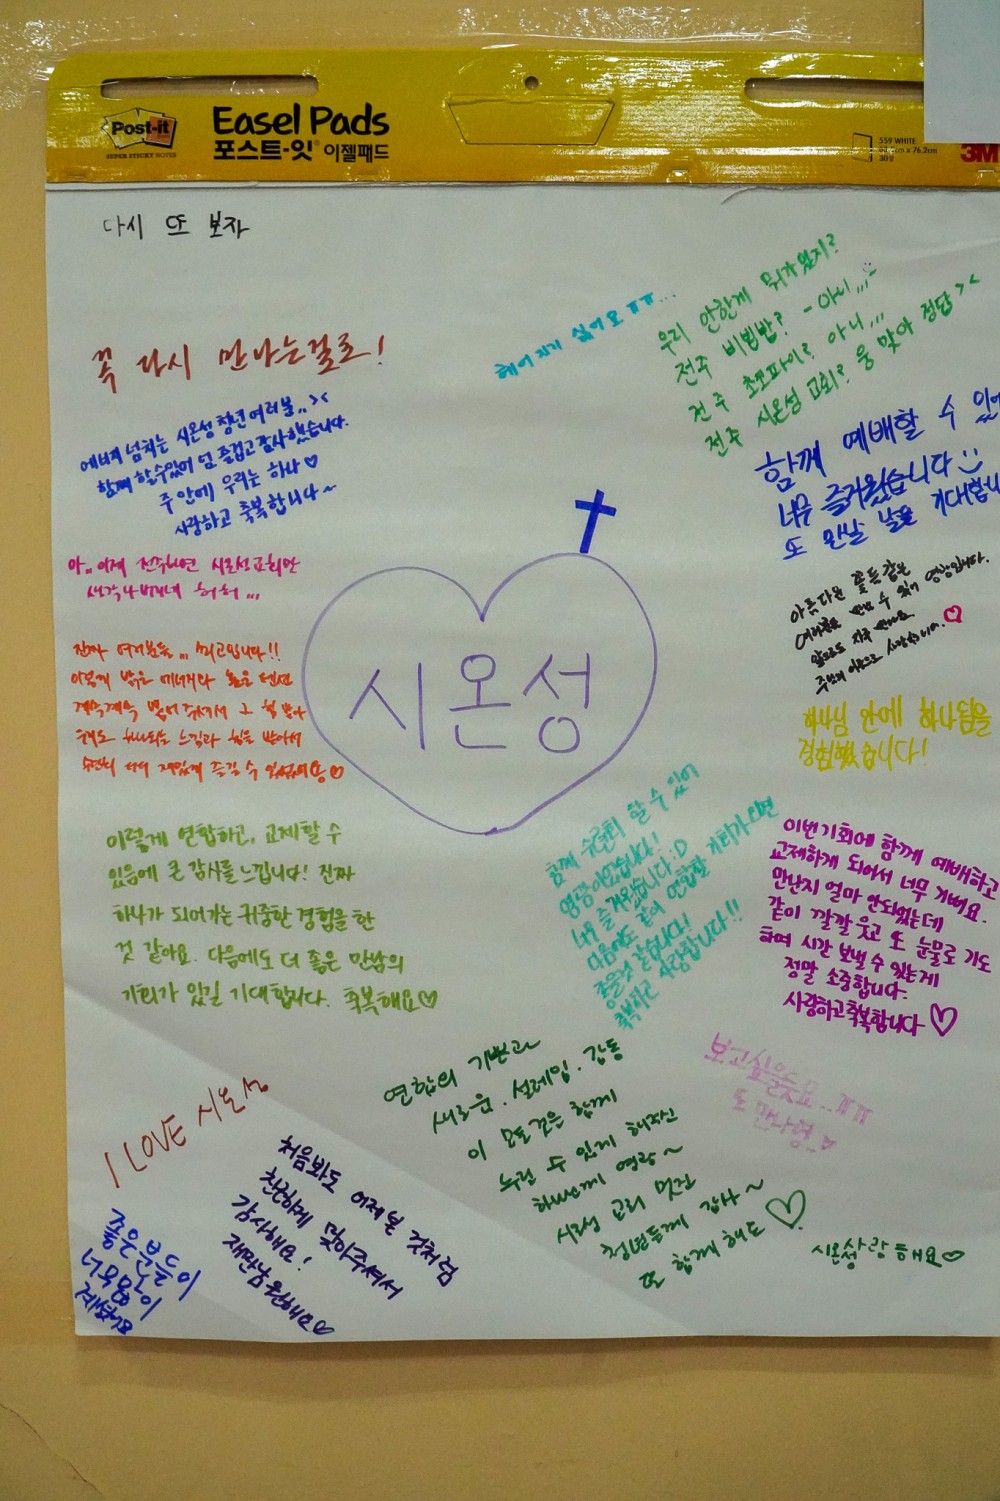 Post-it
SUPER STICKY NOTES
Easel Pads
포스트-잇 이젤패드
559 WHITE
x 76.2cm
30장
3M
다시 또 보자
꼭 다시 만나는걸로!
헤어지기 싫어요 ㅠㅠ...
우리 안한게 뭐가있지?
전주 비빔밥? - 아니,,,
전주 초코파이? 아니,,,
전주 시온성 교회? 웅 맞아 정답 ><
에너지 넘치는 시온성 청년여러분,, ><
함께 할수있어 넘 즐겁고 감사했습니다.
주 안에 우리는 하나♡
사랑하고 축복합니다~
함께 예배할 수 있어
너무 즐거웠습니다
또 만날 날을 기대합니
아,, 이제 전주하면 시온성교회만
생각나버리네 허허,,,
아름다운 꽃들같은
여러분을 만날 수 있어 영광입니다.
앞으로도 자주 만나요
주님의 이름으로 사랑합니다. ♡
진짜 여러분들,,, 최고입니다!!
이렇게 밝은 에너지와 높은 텐션
계속계속 주셔서 그 힘 받아
하나됨을 느낌과 힘을 받아서
재밌게 즐길 수 있었어요♡
시온성
하나님 안에 하나됨을
경험했습니다!
이렇게 연합하고, 교제할 수
있음에 큰 감사를 느낍니다! 진짜
하나가 되어가는 귀중한 경험을 한
것 같아요. 다음에도 더 좋은 만남의
기회가 있길 기대합니다. 축복해요♡
함께 수련회 할 수 있어
영광이었습니다!!
너무 즐거웠습니다 :D
다음에도 같이 연합할 기회가 있으면
좋을것 같습니다!
축복하고 사랑합니다!!
이번기회에 함께 예배하고
교제하게 되어서 너무 기뻐요.
만난지 얼마 안되었는데
같이 깔깔 웃고 또 눈물로 기도
하며 시간 보낼 수 있는게
정말 소중합니다.
사랑하고축복합니다♡
보고싶을듯요..ㅠㅠ
또 만나영..♡
연합의 기쁨과
새로움. 설레임. 감동
이 모든것을 함께
누릴 수 있게 해주신
하나님께 영광~
시온성 교회 멋진
청년들께 감사~
또 함께 해요♡
I LOVE 시온성
처음봐도 어제 본 것처럼
친근하게 맞아주셔서
감사해요!
재만남 원해요♡
좋은분들이
너무많이
계셨어요
시온성사랑해요♡